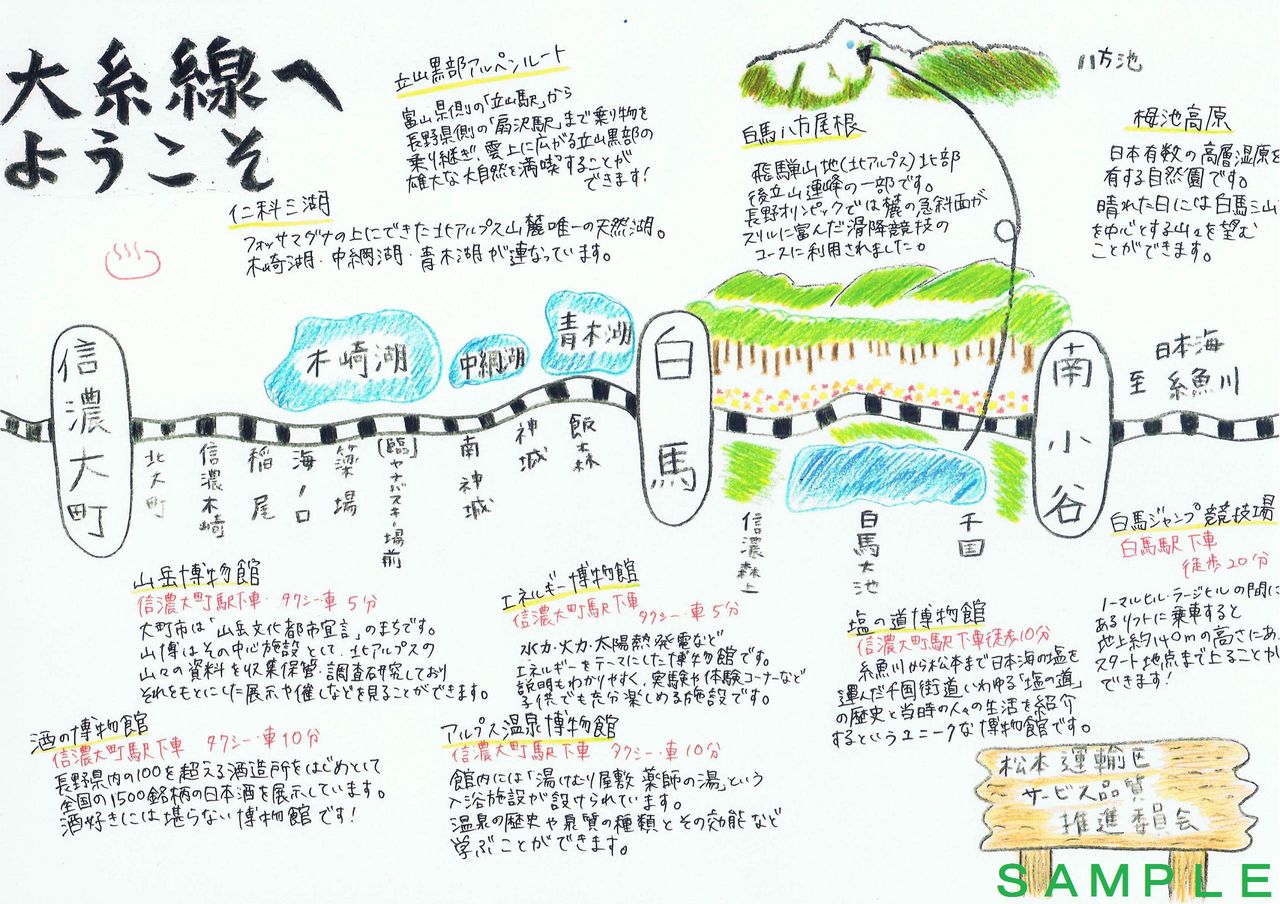 大糸線へ
ようこそ
立山黒部アルペンルート
富山県側の「立山駅」から
長野県側の「扇沢駅」まで乗り物を
乗り継ぎ、雲上に広がる立山黒部の
雄大な大自然を満喫することが
できます!
仁科三湖
フォッサマグナの上にできた北アルプス山麓唯一の天然湖。
木崎湖・中綱湖・青木湖が連なっています。
八方池
白馬八方尾根
飛騨山地(北アルプス)北部
後立山連峰の一部です。
長野オリンピックでは麓の急斜面が
スリルに富んだ滑降競技の
コースに利用されました。
栂池高原
日本有数の高層湿原を
有する自然園です。
晴れた日には白馬三山
を中心とする山々を望む
ことができます。
木崎湖
中綱湖
青木湖
信濃大町
北大町
信濃木崎
稲尾
海ノ口
簗場
[臨]ヤナバスキー場前
南神城
神城
飯森
白馬
信濃森上
白馬大池
千国
南小谷
日本海
至 糸魚川
山岳博物館
信濃大町駅下車・タクシー・車5分
大町市は「山岳文化都市宣言」のまちです。
山博はその中心施設として、北アルプスの
山々の資料を収集保管・調査研究しており
それをもとにした展示や催しなどを見ることができます。
エネルギー博物館
信濃大町駅下車 タクシー・車5分
水力・火力・太陽熱発電など
エネルギーをテーマにした博物館です。
説明もわかりやすく、実験や体験コーナーなど
子供でも充分楽しめる施設です。
塩の道博物館
信濃大町駅下車徒歩10分
糸魚川から松本まで日本海の塩を
運んだ千国街道いわゆる「塩の道」
の歴史と当時の人々の生活を紹介
するというユニークな博物館です。
白馬ジャンプ競技場
白馬駅下車
徒歩20分
ノーマルヒル・ラージヒルの間に
あるリフトに乗車すると
地上約140mの高さにあ
スタート地点まで上ることが
できます!
酒の博物館
信濃大町駅下車 タクシー・車10分
長野県内の100を超える酒造所をはじめとして
全国の1500銘柄の日本酒を展示しています。
酒好きには堪らない博物館です!
アルプス温泉博物館
信濃大町駅下車 タクシー・車10分
館内には「湯けむり屋敷 薬師の湯」という
入浴施設が設けられています。
温泉の歴史や泉質の種類とその効能など
学ぶことができます。
松本運輸区
サービス品質
推進委員会
SAMPLE